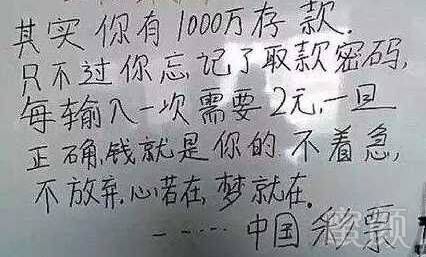 其实你有1000万存款.
只不过你忘记了取款密码,
每输入一次需要2元,一旦
正确,钱就是你的.不着急,
不放弃.心若在,梦就在.
-----中国彩票